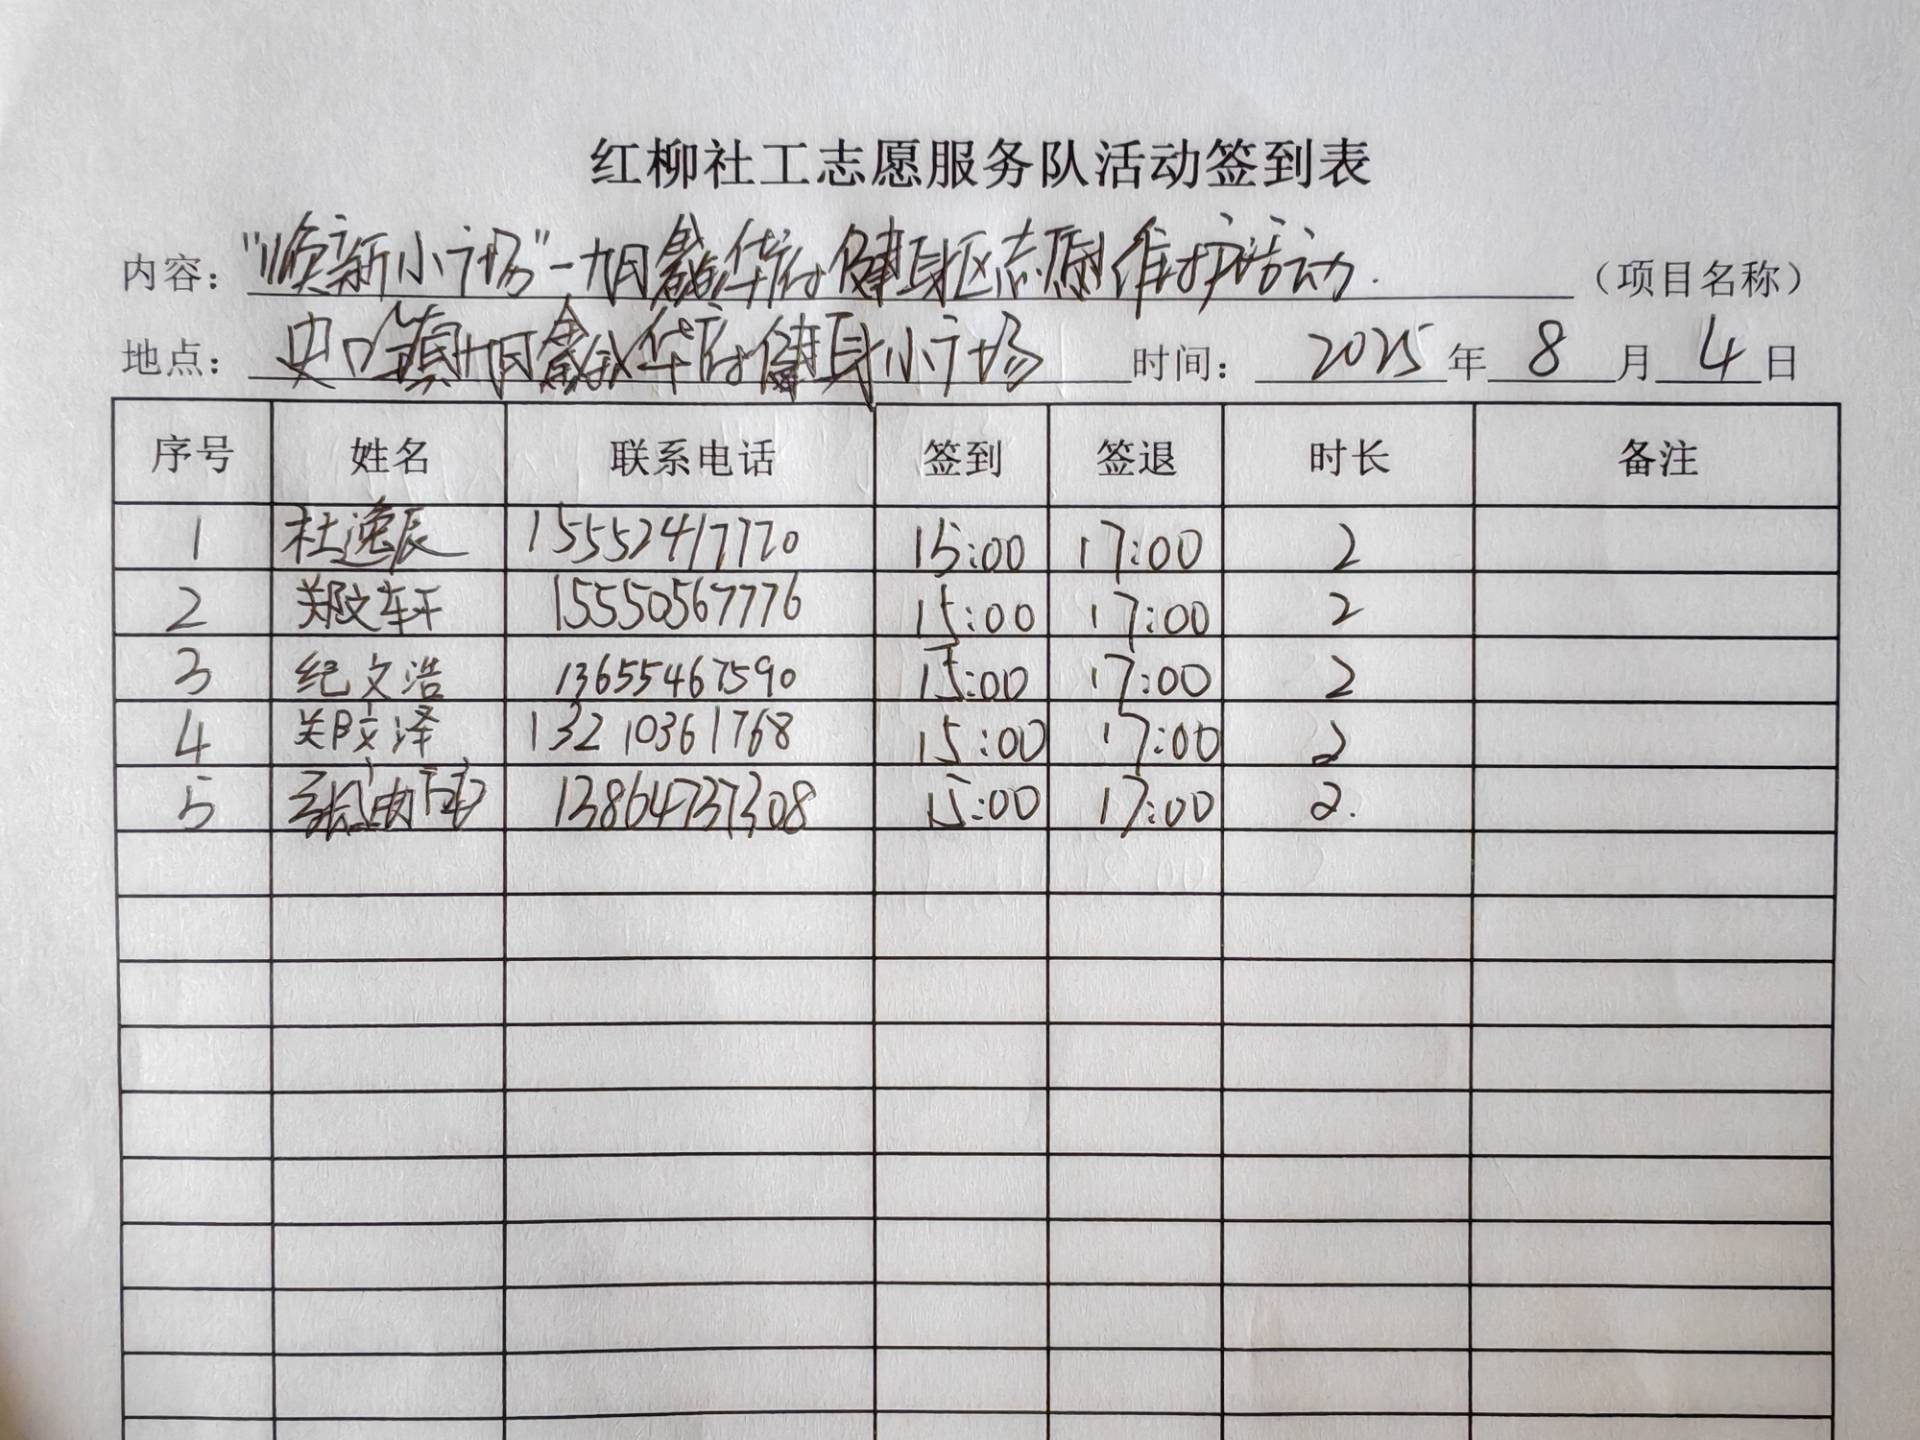 红柳社工志愿服务队活动签到表
内容：“焕新小广场”—旭日鑫城华府健身区志愿维护活动.（项目名称）
地点：史口镇旭日鑫城华府健身小广场 时间：2025年8月4日
序号 姓名 联系电话 签到 签退 时长 备注
1 杜逸辰 15552417770 15:00 17:00 2
2 郑文轩 15550567776 15:00 17:00 2
3 纪文浩 13655467590 15:00 17:00 2
4 郑文泽 13210361768 15:00 17:00 2
5 13864737308 15:00 17:00 2.